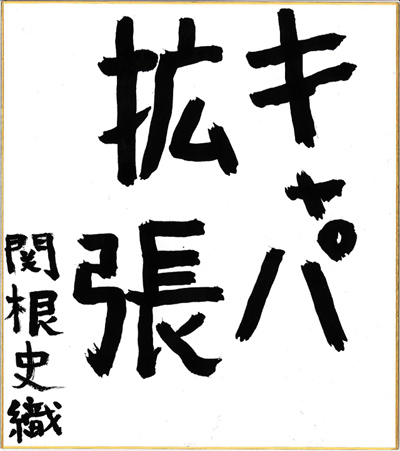 キャパ
拡張
関根史織